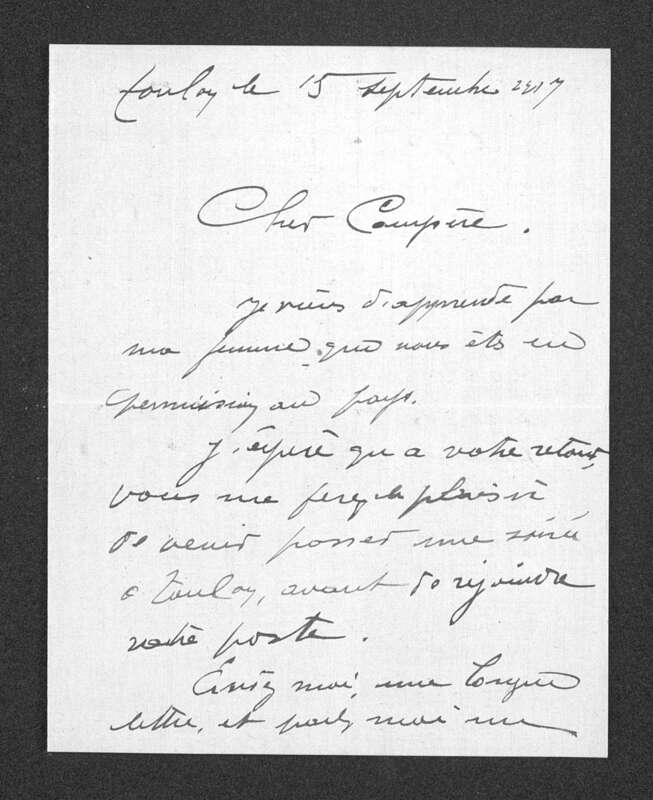 Toulon le 15 septembre 1917
Cher Compère.
je viens d'apprendre par
ma femme, que vous êtes en
permission au pays.
J'éspère qu'a votre retour,
vous me ferez le plaisir
de venir passer une soirée
a Toulon, avant de rejoindre
votre poste.
moi, une longue
lettre, et parlez moi un